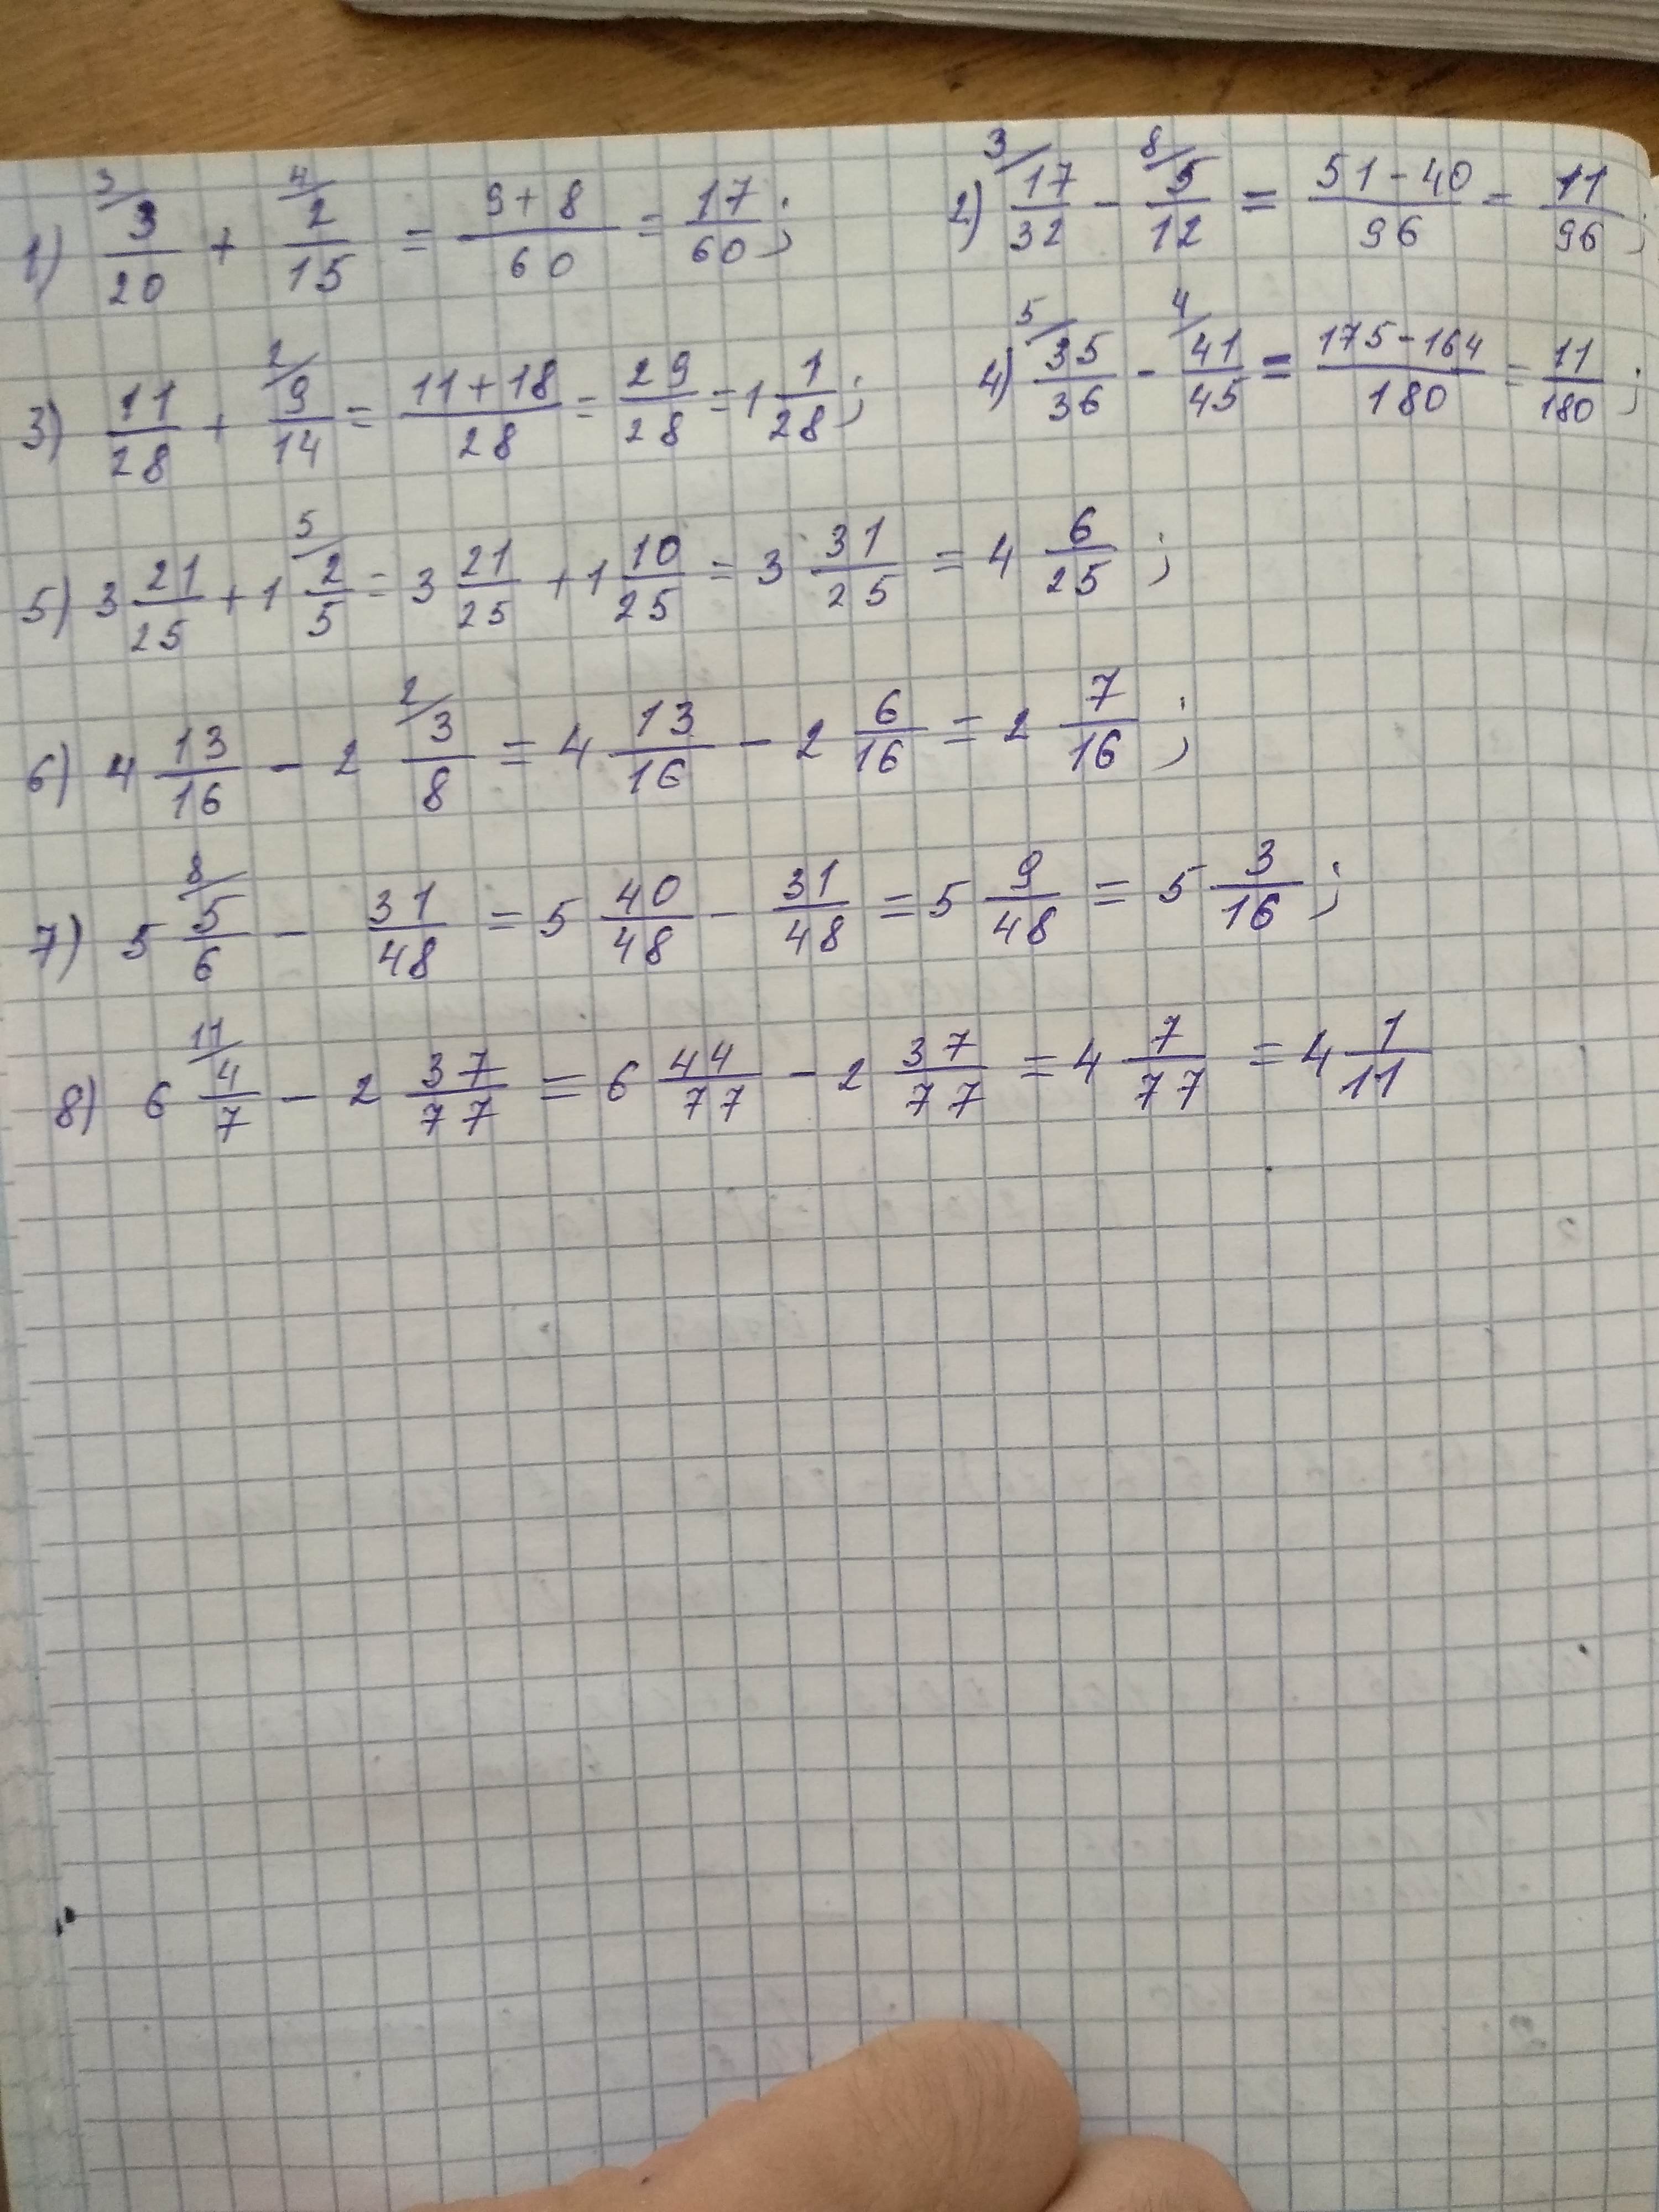 1) 3/ 3/20 + 4/ 2/15 = (9+8)/60 = 17/60; 2) 3/ 17/32 - 8/ 5/12 = (51-40)/96 - 11/96;
3) 11/28 + 2/ 9/14 = (11+18)/28 = 29/28 = 1 1/28; 4) 5/ 35/36 - 4/ 41/45 = (175-164)/180 = 11/180;
5) 3 21/25 + 1 5/ 2/5 = 3 21/25 + 1 10/25 = 3 31/25 = 4 6/25;
6) 4 13/16 - 2 2/ 3/8 = 4 13/16 - 2 6/16 = 2 7/16;
7) 5 8/ 5/6 - 31/48 = 5 40/48 - 31/48 = 5 9/48 = 5 3/16;
8) 6 11/ 4/7 - 2 37/77 = 6 44/77 - 2 37/77 = 4 7/77 = 4 1/11